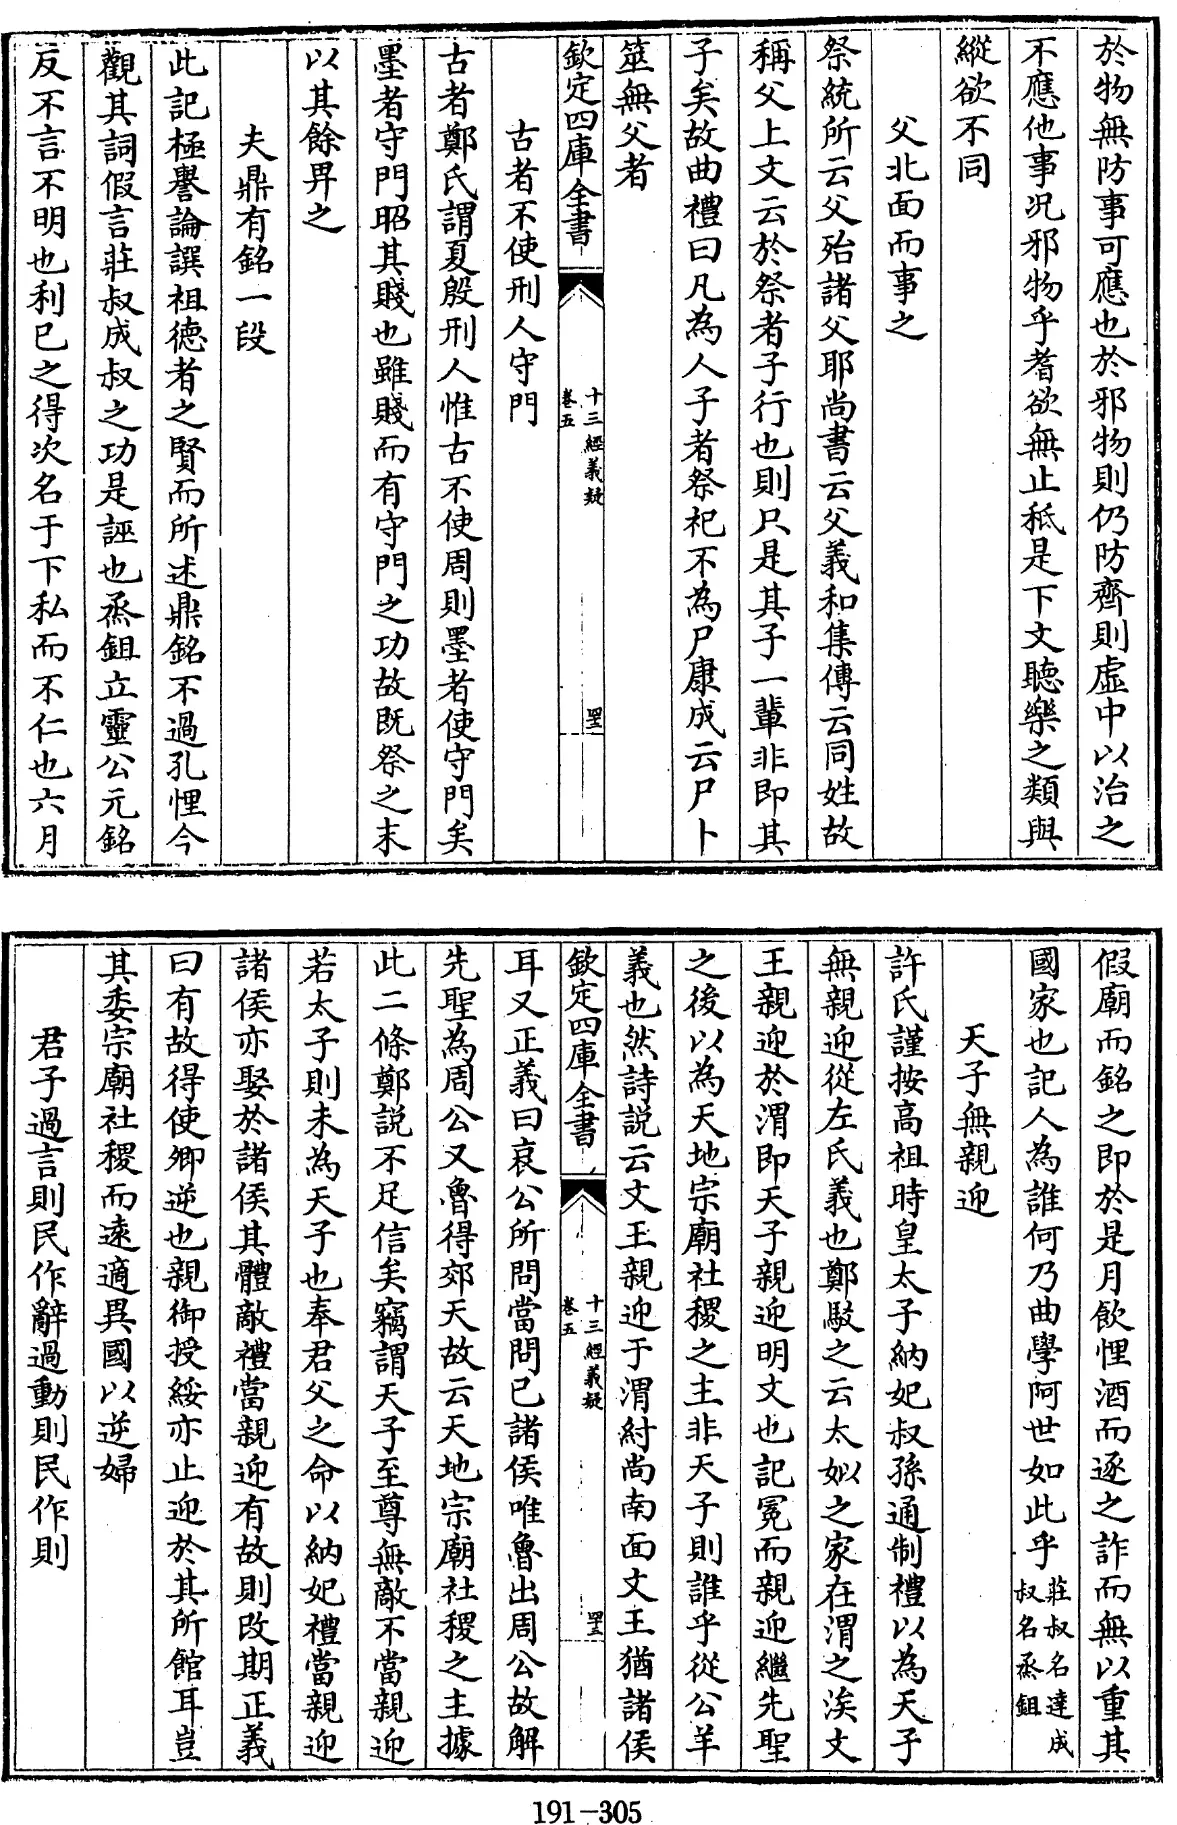 於物無防事可應也於邪物則仍防齊則虛中以治之
不應他事況邪物乎耆欲無止秪是下文聽樂之類與
縱欲不同
父北面而事之
祭統所云父殆諸父耶尚書云父義和集傳云同姓故
稱父上文云於祭者子行也則只是其子一輩非即其
子矣故曲禮曰凡為人子者祭祀不為尸康成云尸卜
筮無父者
欽定四庫全書
十三經義疑
卷五
古者不使刑人守門
古者鄭氏謂夏殷刑人惟古不使周則墨者使守門矣
墨者守門昭其賤也雖賤而有守門之功故既祭之末
以其餘畀之
夫鼎有銘一段
此記極譽論譔祖德者之賢而所述鼎銘不過孔悝今
觀其詞假言莊叔成叔之功是誣也烝鉏立靈公元銘
反不言不明也利已之得次名于下私而不仁也六月
假廟而銘之即於是月飲悝酒而逐之詐而無以重其
國家也記人為誰何乃曲學阿世如此乎莊叔名達成叔名烝鉏
天子無親迎
許氏謹按高祖時皇太子納妃叔孫通制禮以為天子
無親迎從左氏義也鄭駁之云太姒之家在渭之涘文
王親迎於渭即天子親迎明文也記冕而親迎繼先聖
之後以為天地宗廟社稷之主非天子則誰乎從公羊
義也然詩說云文王親迎于渭紂尚南面文王猶諸侯
欽定四庫全書
十三經義疑
卷五
耳又正義曰哀公所問當問已諸侯唯魯出周公故解
先聖為周公又魯得郊天故云天地宗廟社稷之主據
此二條鄭說不足信矣竊謂天子至尊無敵不當親迎
若太子則未為天子也奉君父之命以納妃禮當親迎
諸侯亦娶於諸侯其體敵禮當親迎有故則改期正義
曰有故得使卿逆也親御授綏亦止迎於其所館耳豈
其委宗廟社稷而遠適異國以逆婦
君子過言則民作辭過動則民作則
191-305